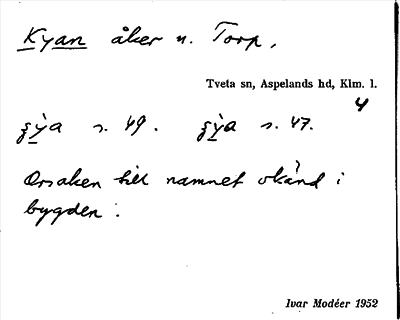 Kyan åker n. Torp.
Tveta sn, Aspelands hd, Klm. l.
4
ṣỳa s. 49. ṣỳa s. 47.
Orsaken till namnet okänd i
bygden.
Ivar Modéer 1952